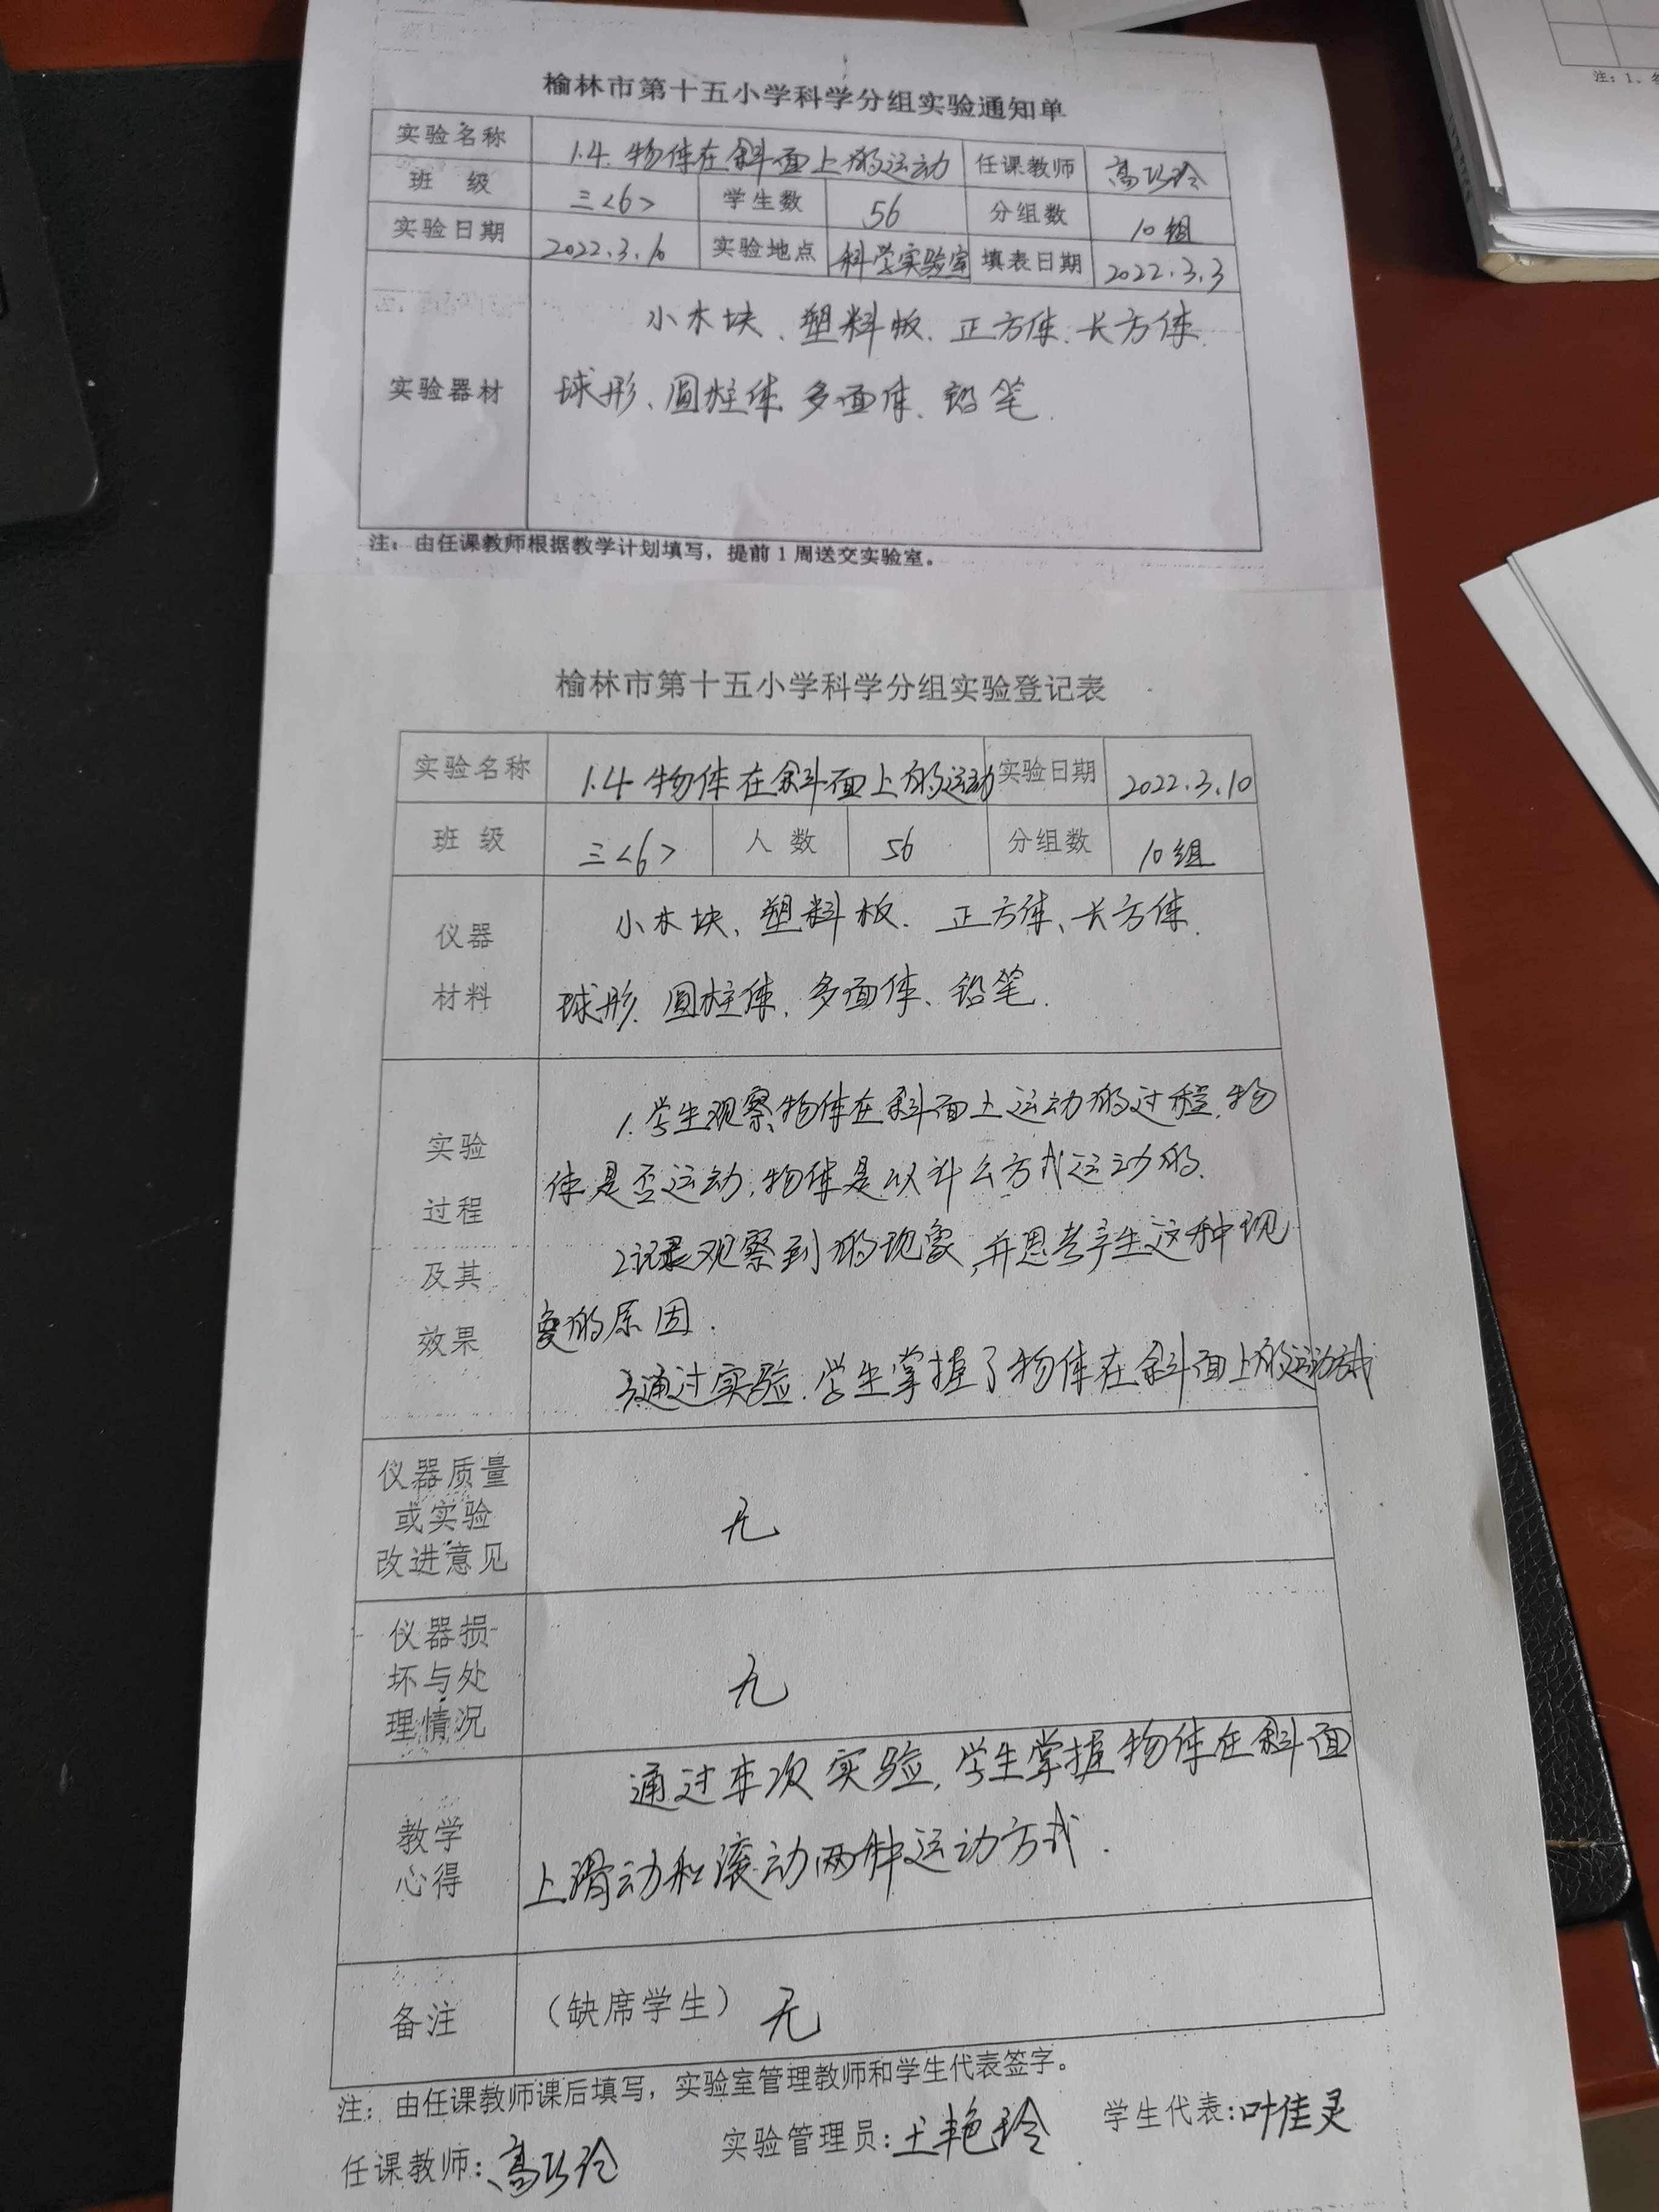 榆林市第十五小学科学分组实验通知单
实验名称 1.4.物体在斜面上的运动 任课教师 高巧玲
班 级 三<6> 学生数 56 分组数 10组
实验日期 2022.3.10 实验地点 科学实验室 填表日期 2022.3.3
小木块、塑料板、正方体、长方体、
实验器材 球形、圆柱体、多面体、铅笔.
注：由任课教师根据教学计划填写，提前1周送交实验室。
榆林市第十五小学科学分组实验登记表
实验名称 1.4 物体在斜面上的运动 实验日期 2022.3.10
班 级 三<6> 人 数 56 分组数 10组
仪器 小木块、塑料板、正方体、长方体、
材料 球形、圆柱体、多面体、铅笔.
实验 1.学生观察物体在斜面上运动的过程,物
过程 体是否运动,物体是以什么方式运动的.
及其 2.记录观察到的现象,并思考产生这种现
效果 象的原因.
3.通过实验,学生掌握了物体在斜面上的运动方式
仪器质量
或实验 无
改进意见
仪器损
坏与处 无
理情况
通过本次实验,学生掌握物体在斜面
教学
心得 上滑动和滚动两种运动方式.
备注 （缺席学生） 无
注：由任课教师课后填写，实验室管理教师和学生代表签字。
任课教师:高巧玲 实验管理员:王艳玲 学生代表:叶佳灵
注：1、